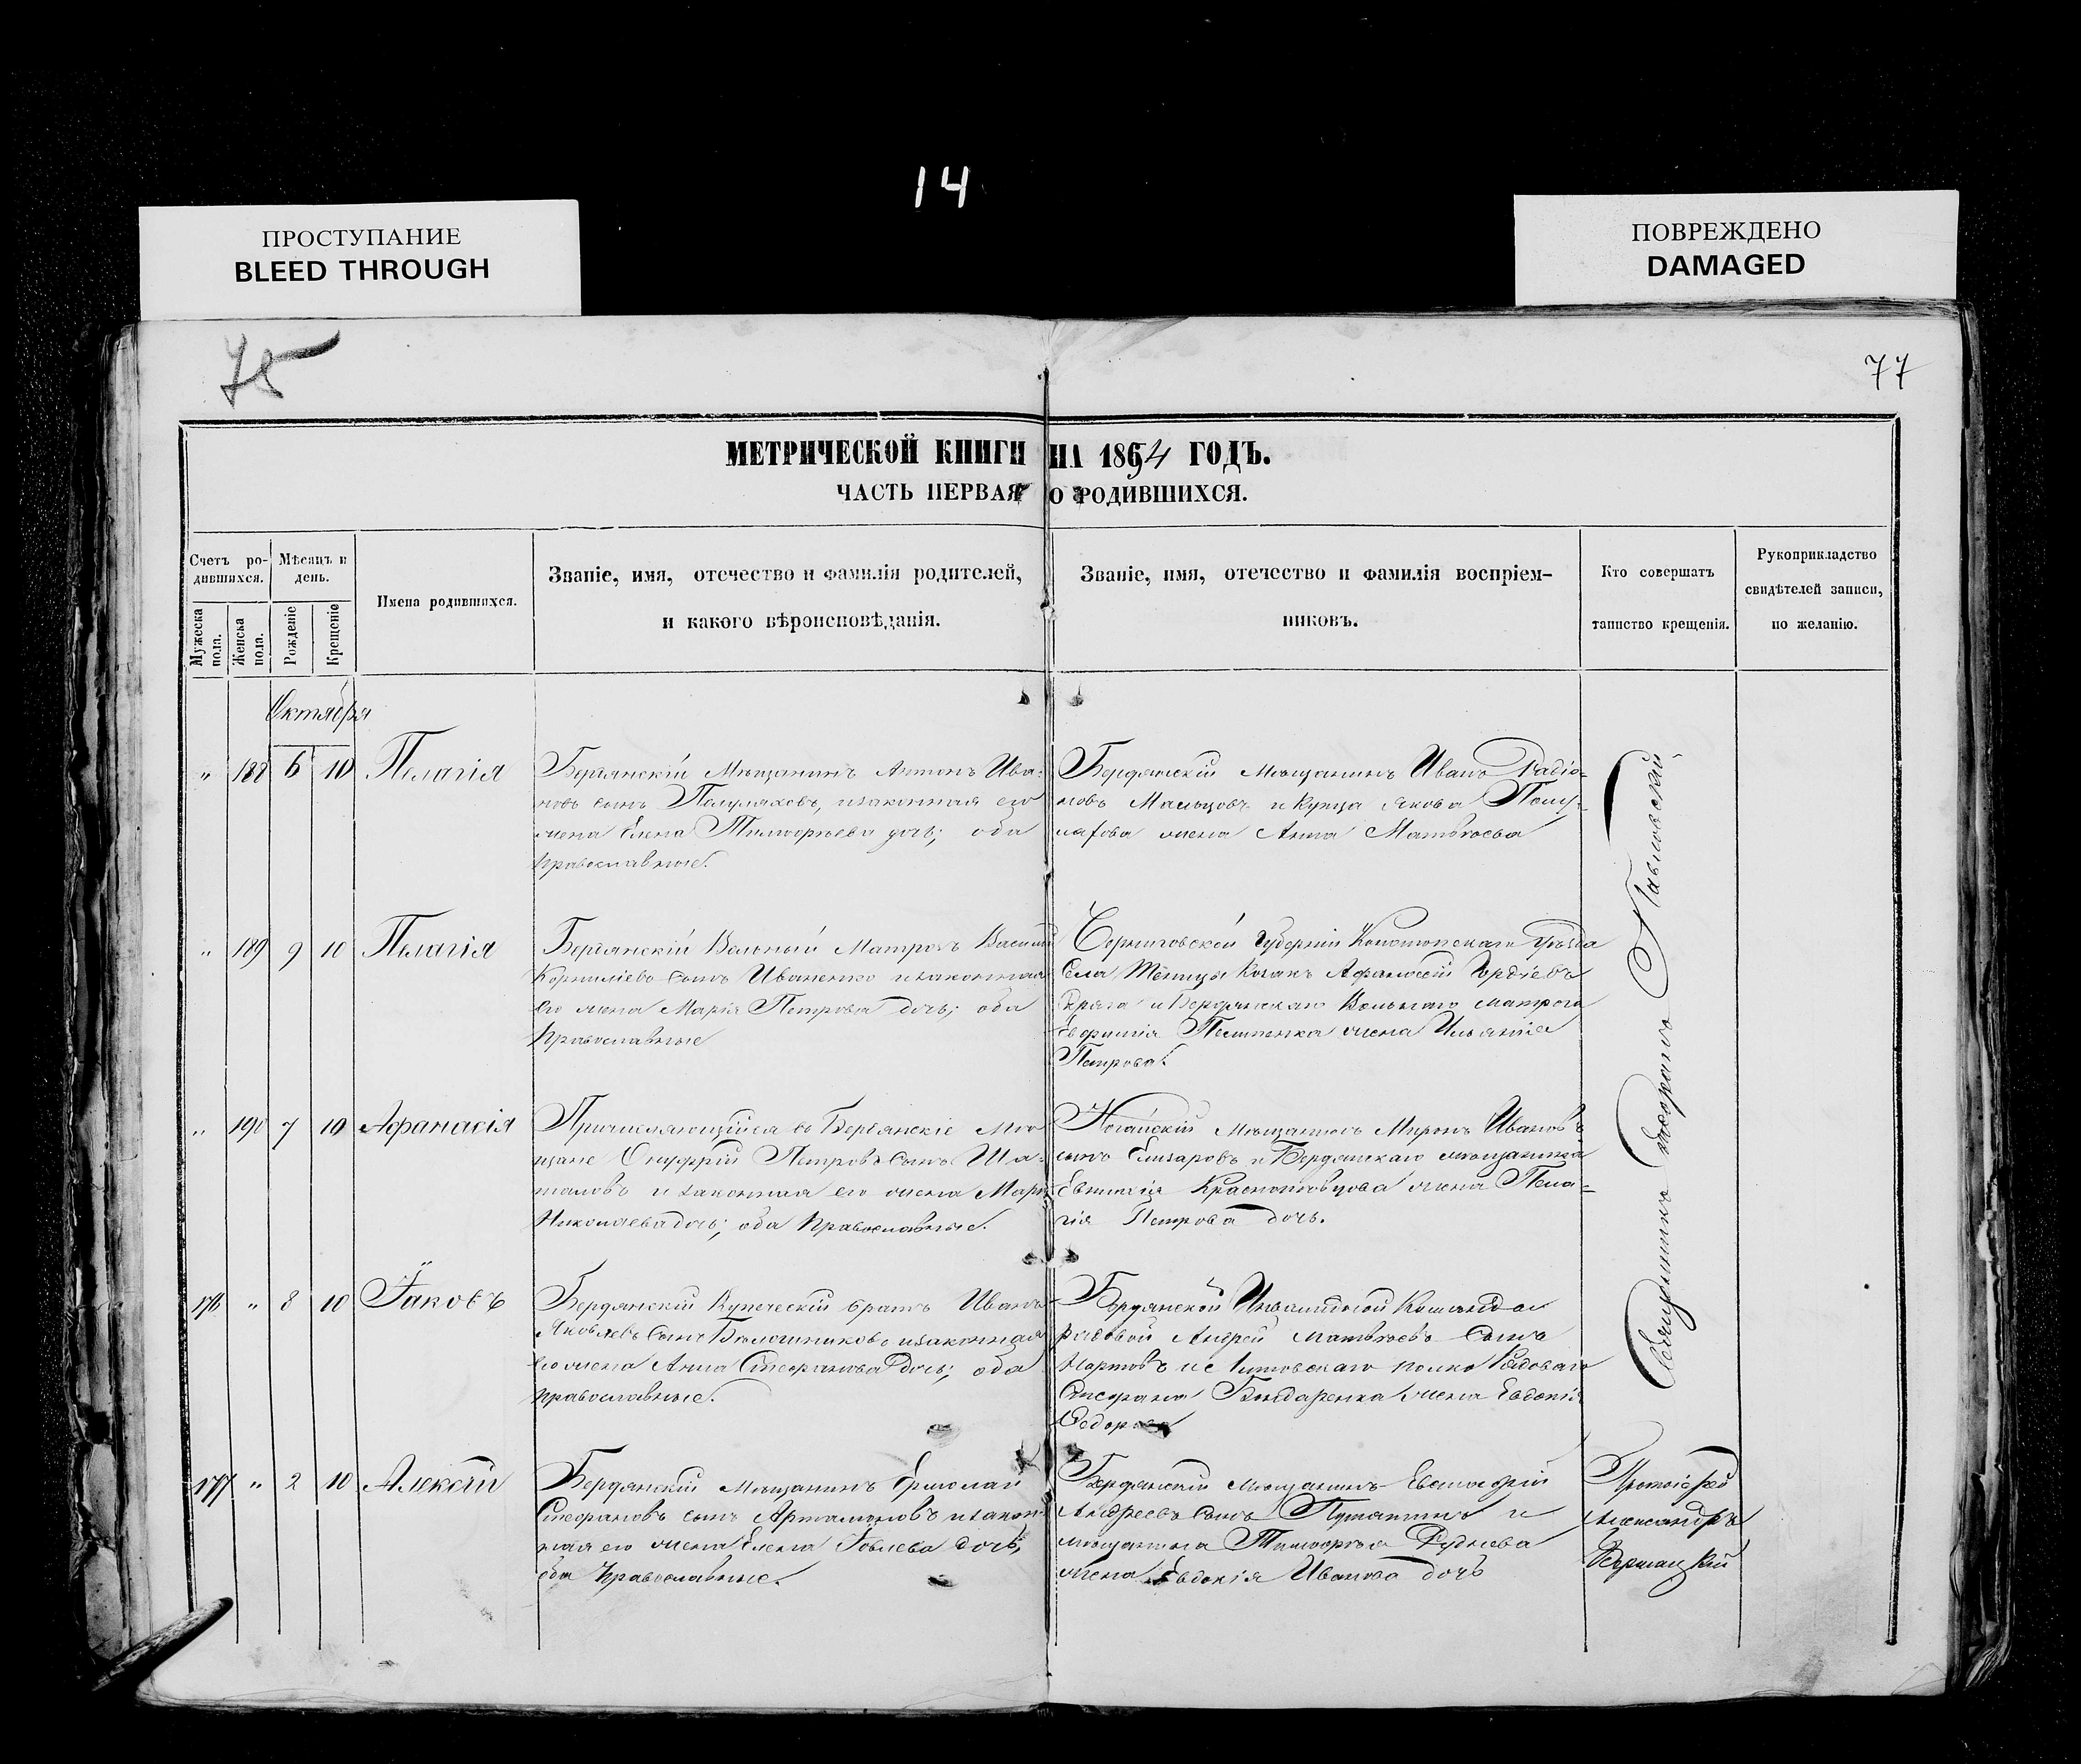 14
ПРОСТУПАНИЕ
BLEED THROUGH
ПОВРЕЖДЕНО
DAMAGED
75
77
МЕТРИЧЕСКОЙ КНИГИ НА 1864 ГОДЪ.
ЧАСТЬ ПЕРВАЯ О РОДИВШИХСЯ.
Счетъ ро-
дившихся.
Мужеска пола.
Женска пола.
Мѣсяцъ и
день.
Рожденіе
Крещеніе
Имена родившихся.
Званіе, имя, отечество и фамилія родителей,
и какого вѣроисповѣданія.
Званіе, имя, отечество и фамилія воспріем-
никовъ.
Кто совершатъ
таинство крещенія.
Рукоприкладство
свидѣтелей записи,
по желанію.
Октября
" 188 6 10 Пелагія
Бердянскій Мѣщанинъ Антонъ Ива-
новъ сынъ Полуляховъ, и законная его
жена Елена Тимофѣева дочь; оба
Православные.
Бердянскій Мѣщанинъ Иванъ Радіо-
новъ Мальцовъ и Купца Якова Полу-
жена Анна Матвѣева
" 189 9 10 Пелагія
Бердянскій Вольный Матрозъ Василій
Корниліевъ сынъ Иваненко и законная
его жена Марія Петрова дочь; оба
Православные
Черниговской Губерніи Конотопскаго Уѣзда
Села Козакъ Афанасій Гордіевъ
и Бердянскаго Вольнаго матроза
жена Ульянія
Петрова.
" 190 7 10 Афанасія
Причисляющійся въ Бердянскіе Мѣ-
щане Онуфрій Петровъ сынъ Ша-
и законная его жена Марія
Николаева дочь; оба Православные.
Ногайскій Мѣщанинъ Миронъ Ивановъ
сынъ Елизаровъ и Бердянскаго мѣщанина
жена Пела-
гія Петрова дочь.
176 " 8 10 Іаковъ
Бердянскій Купеческій братъ Иванъ
Яковлевъ сынъ и законная
его жена Анна Стефанова дочь; оба
православные.
Бердянской Инвалидной Команды
рядовой Андрей Матвѣевъ сынъ
полка Рядоваго
Стефана Бондаренка жена Евдокія
Федорова
177 " 2 10 Алексѣй
Бердянскій Мѣщанинъ Ермолай
Стефановъ сынъ Артамоновъ и закон-
ная его жена Елена Іовлева дочь;
оба Православные.
Бердянскій Мѣщанинъ Евстафій
Андреевъ сынъ и
мѣщанина Тимофѣя Руднева
жена Евдокія Иванова дочь
Священникъ Стефанъ Павловскій
Протоіерей
Александръ